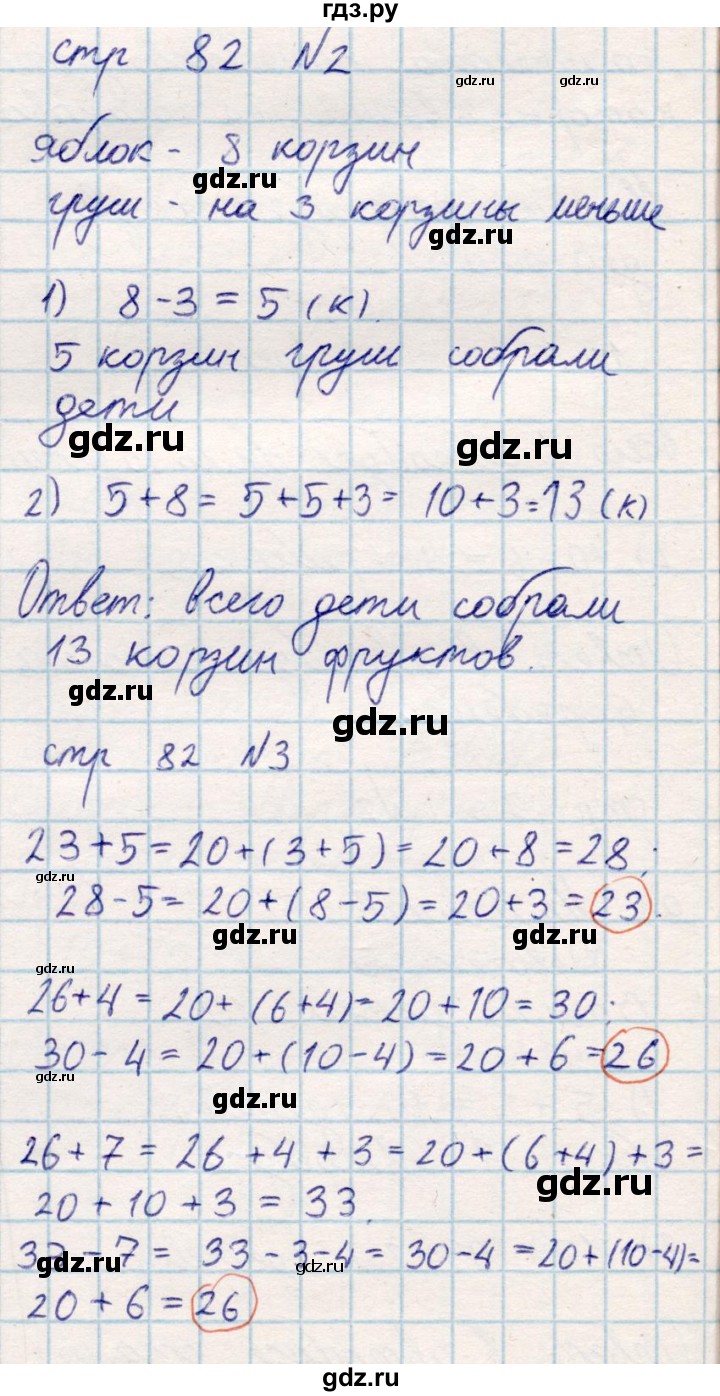 гдз.ру
стр 82 N2
gdz.ru gdz.ru
яблок - 8 корзин
gdz.ru
груш - на 3 корзины меньше
gdz.ru
1) 8-3=5 (к).
5 корзин груш собрали
дети
gdz.ru gdz.ru
2) 5+8= 5+5+3= 10+3=13 (к)
Ответ: всего дети собрали
13 корзин фруктов.
gdz.ru
gdz.ru
стр 82 N3
23+5=20+(3+5)=20+8=28;
gdz.ru
28-5= 20+(8-5)=20+3=23.
gdz.ru gdz.ru
gdz.ru
26+4=20+(6+4)=20+10=30;
30-4=20+(10-4)=20+6=26
gdz.ru
gdz.ru
26+7=26+4+3=20+(6+4)+3=
gdz.ru
20+10+3=33.
33-7= 33-3-4= 30-4=20+(10-4)=
gdz.ru gdz.ru
20+6=26
gdz.ru gdz.ru
gdz.ru